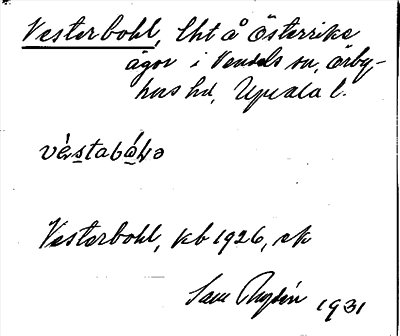 Vesterbohl, lht å Österrike
ägor i Vendels sn, Örby-
hus hd, Upsala l.
véstabåla
Vesterbohl, kb 1926, ek
Sam Rydin 1931